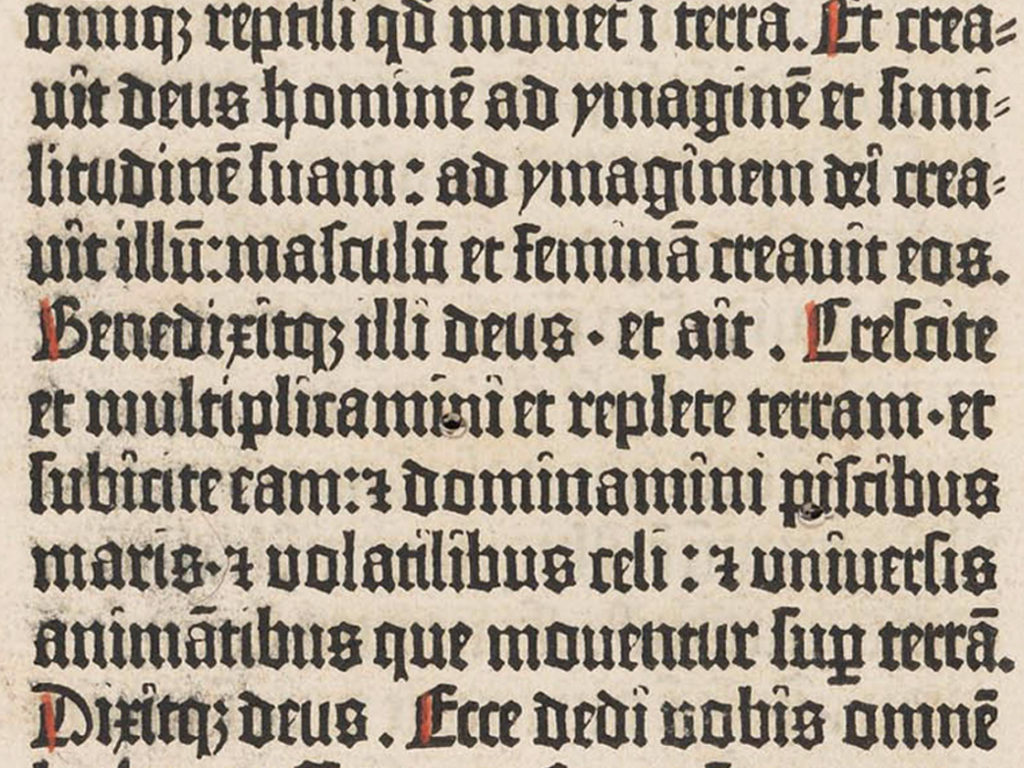 omniqꝫ reptili qđ mouet̄ ī terra. Et crea⸗
uit deus hominē ad ymaginē et simi⸗
litudinē suam: ad ymaginem dei crea⸗
uit illū: masculū et feminā creauit eos.
Benedixitqꝫ illi deus · et ait . Crescite
et multiplicamini et replete terram · et
subicite eam: ⁊ dominamini piscibus
maris · ⁊ volatilibus celi : ⁊ vniuersis
animātibus que mouentur suꝑ terrā.
Dixitqꝫ deus . Ecce dedi vobis omnē